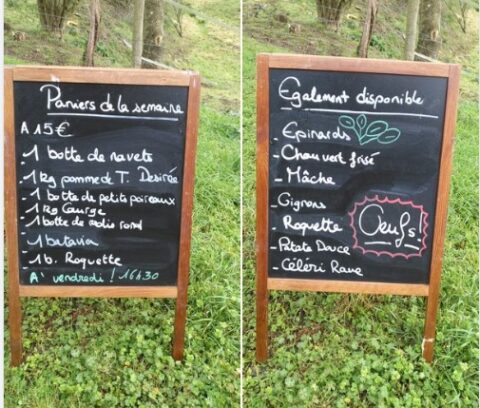 Paniers de la semaine
A 15€
- 1 botte de navets
- 1 kg pomme de T. Desirée
- 1 botte de petits poireaux
- 1 kg Courge
- 1 botte de radis rond
- 1 batavia
- 1 b. Roquette
A' vendredi ! 16h30
Egalement disponible
- Epinards
- Chou vert frisé
- Mâche
- Oignons
- Roquette
- Patate Douce
- Céléri Rave
Œufs